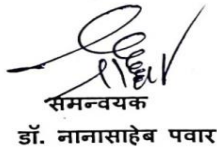 समन्वयक
डॉ. नानासाहेब पवार